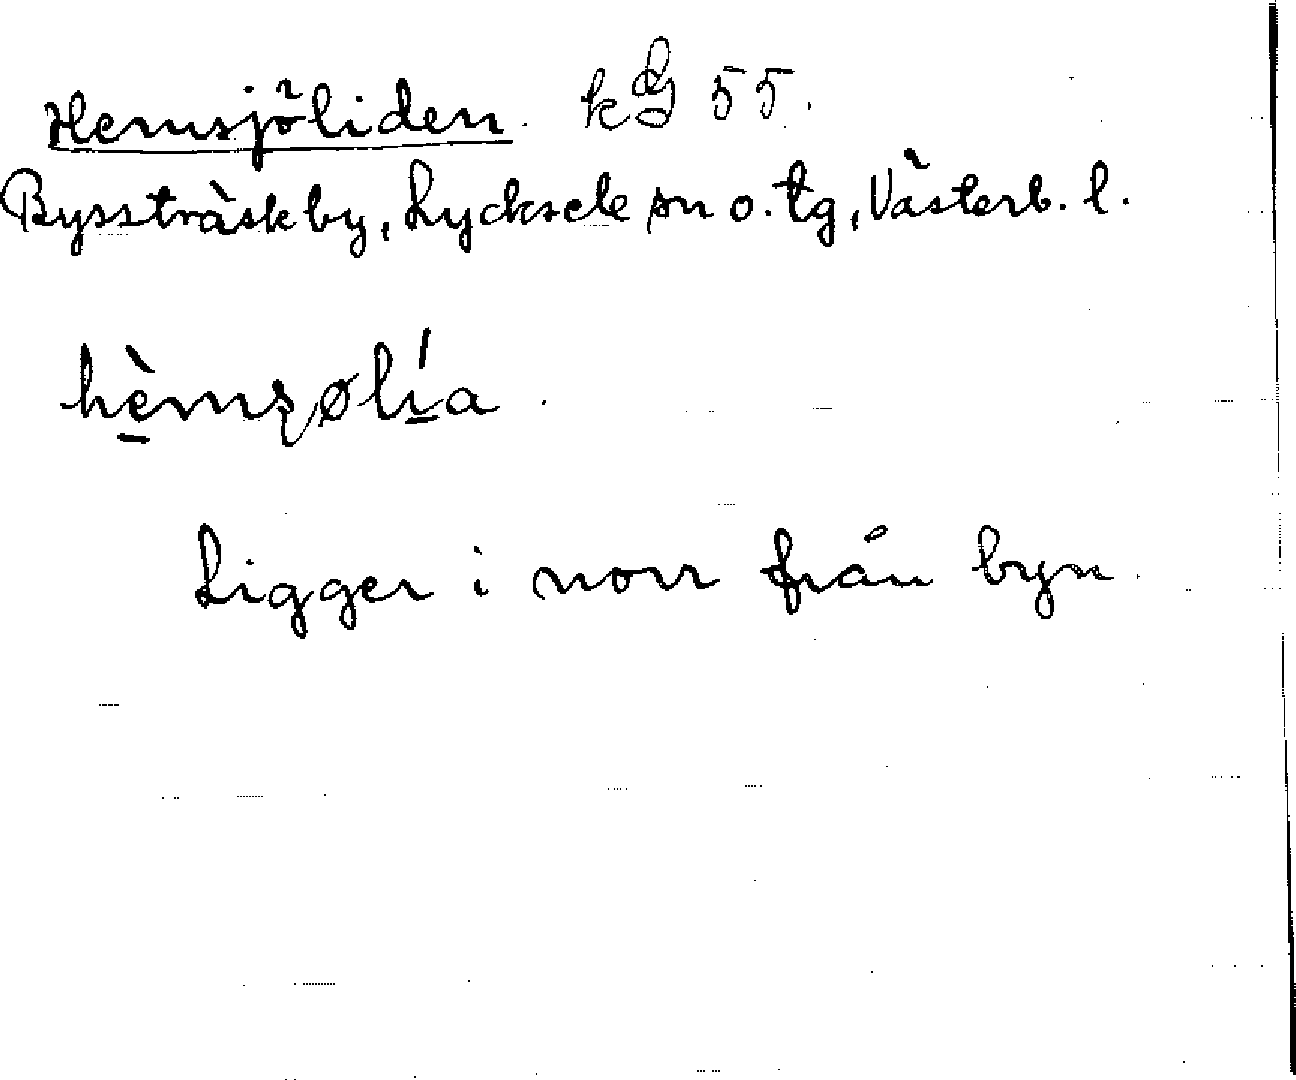 Hemsjöliden. k G 55.
Bysstråsk by, Lycksele sn o. tg, Västerb. l.
hèmsølía.
Ligger i norr från byn.